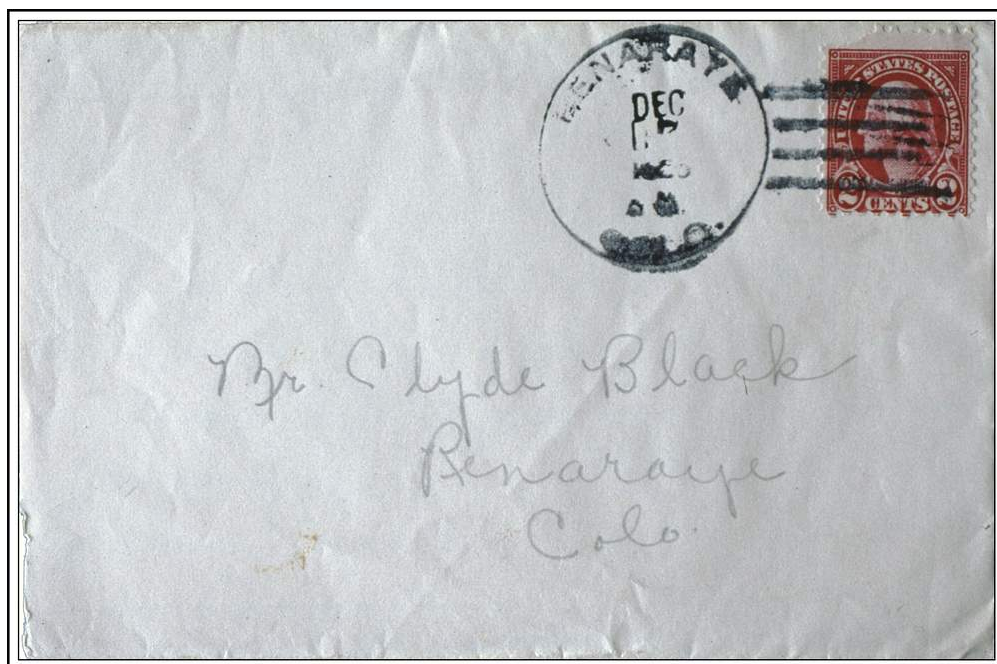 RENARAYE
DEC
17
A.M.
UNITED STATES POSTAGE
2 CENTS 2
Mr. Clyde Black
Renaraye
Colo.